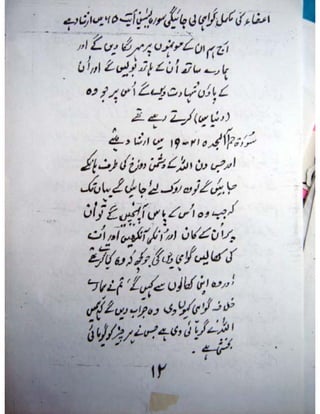 اعضاء کی مکمل گواہی لی جائیگی سورۃ یٰسین آیت ۶۵ میں ارشاد ہے
آج ہم ان کے مونہوں پر مہر لگا دیں گے اور
ہمارے ساتھ اُن کے ہاتھ بولیں گے اور اُن
کے پاؤں شہادت دیں گے اُس پر جو وہ
(دنیا میں) کرتے رہے تھے
سورۃ حم السجدہ ۱۹-۲۱ میں ارشاد ہے
اور جس دن اللہ کے دشمن دوزخ کی طرف ہانکے
جائیں گے تو وہ روک لیے جائیں گے یہاں تک
کہ جب وہ اُس کے پاس آ پہنچیں گے تو اُن
پر ان کے کان اور انکی آنکھیں اور اُن
کی کھالیں گواہی دیں گی جو کچھ کہ وہ کیا کرتے تھے
اور وہ اپنی کھالوں سے کہیں گے تم نے ہمارے
خلاف گواہی کیوں دی وہ جواب دیں گے کہ ہمیں
اللہ نے گویائی دی ہے جس نے ہر چیز کو گویائی
بخشی ہے۔
۱۲